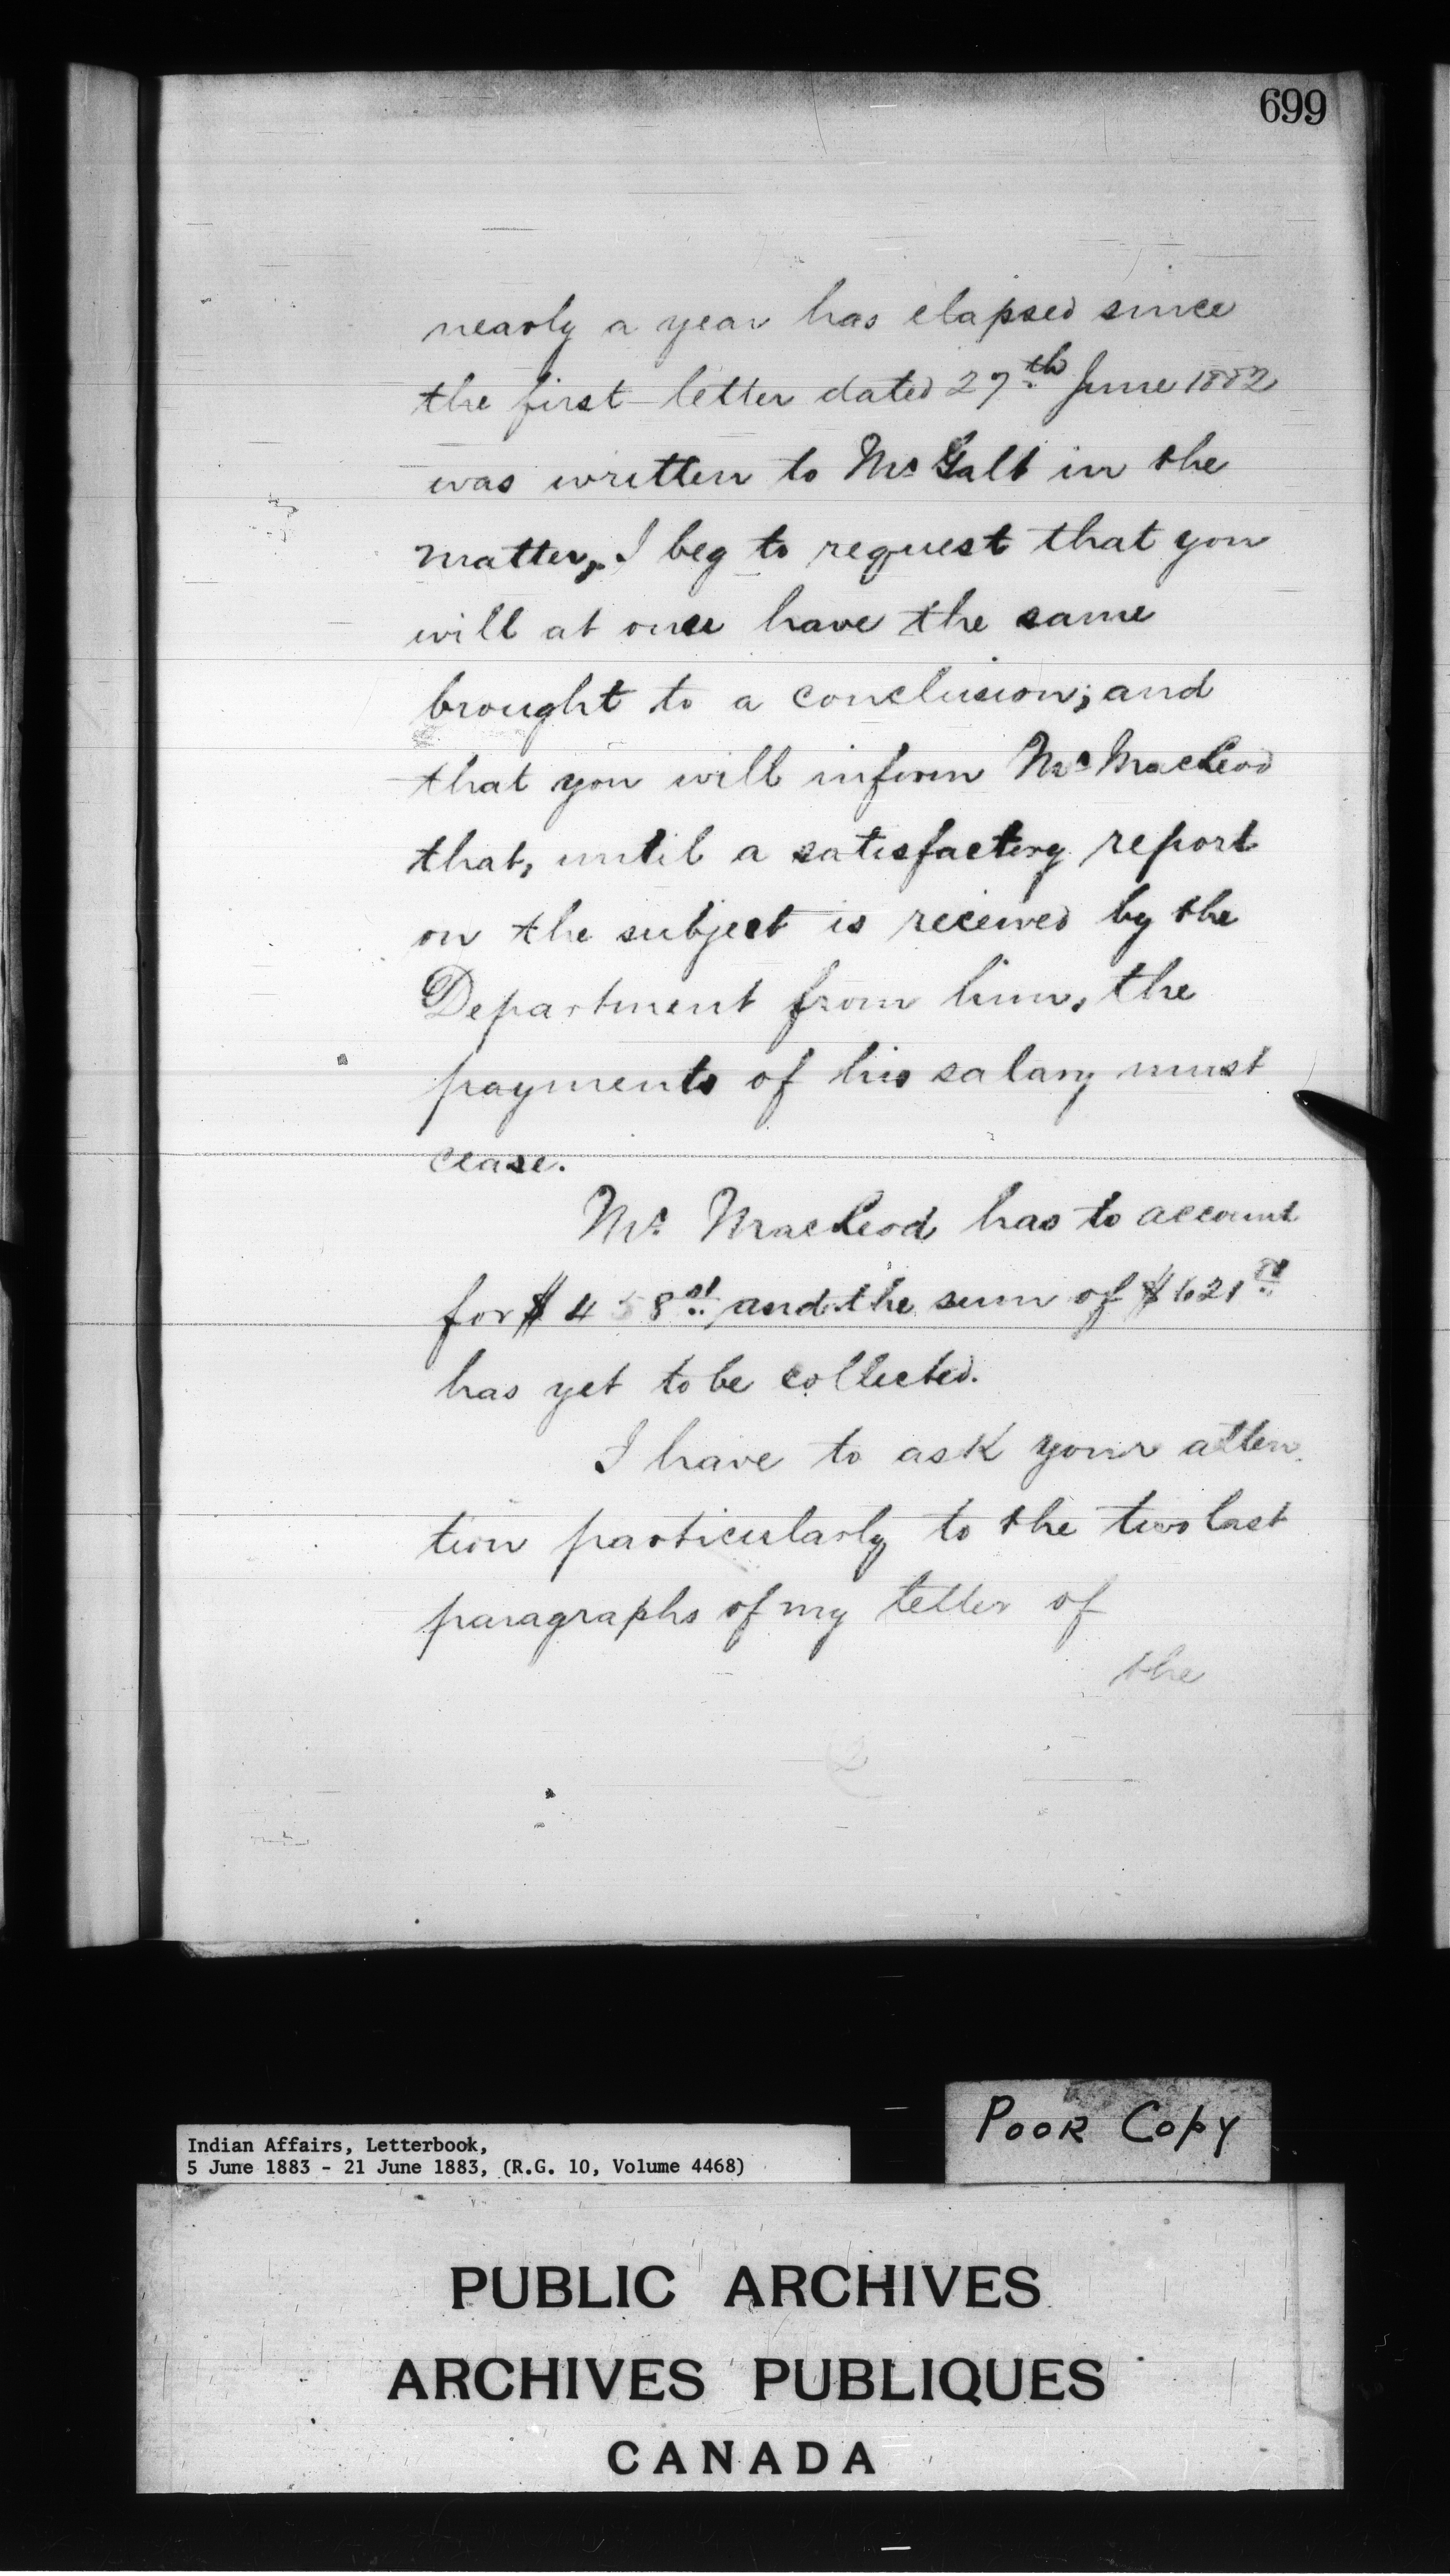 699
nearly a year has elapsed since
the first letter dated 27th June 1882
was written to Mr Galt in the
matter, I beg to request that you
will at once have the same
brought to a conclusion; and
that you will inform Mr MacLeod
that, until a satisfactory report
on the subject is received by the
Department from him, the
payments of his salary must
cease.
Mr. MacLeod has to account
for $458 and the sum of $621
has yet to be collected.
I have to ask your atten
tion particularly to the two last
paragraphs of my letter of
the
POOR COPY
Indian Affairs, Letterbook,
5 June 1883 - 21 June 1883, (R.G. 10, Volume 4468)
PUBLIC ARCHIVES
ARCHIVES PUBLIQUES
CANADA